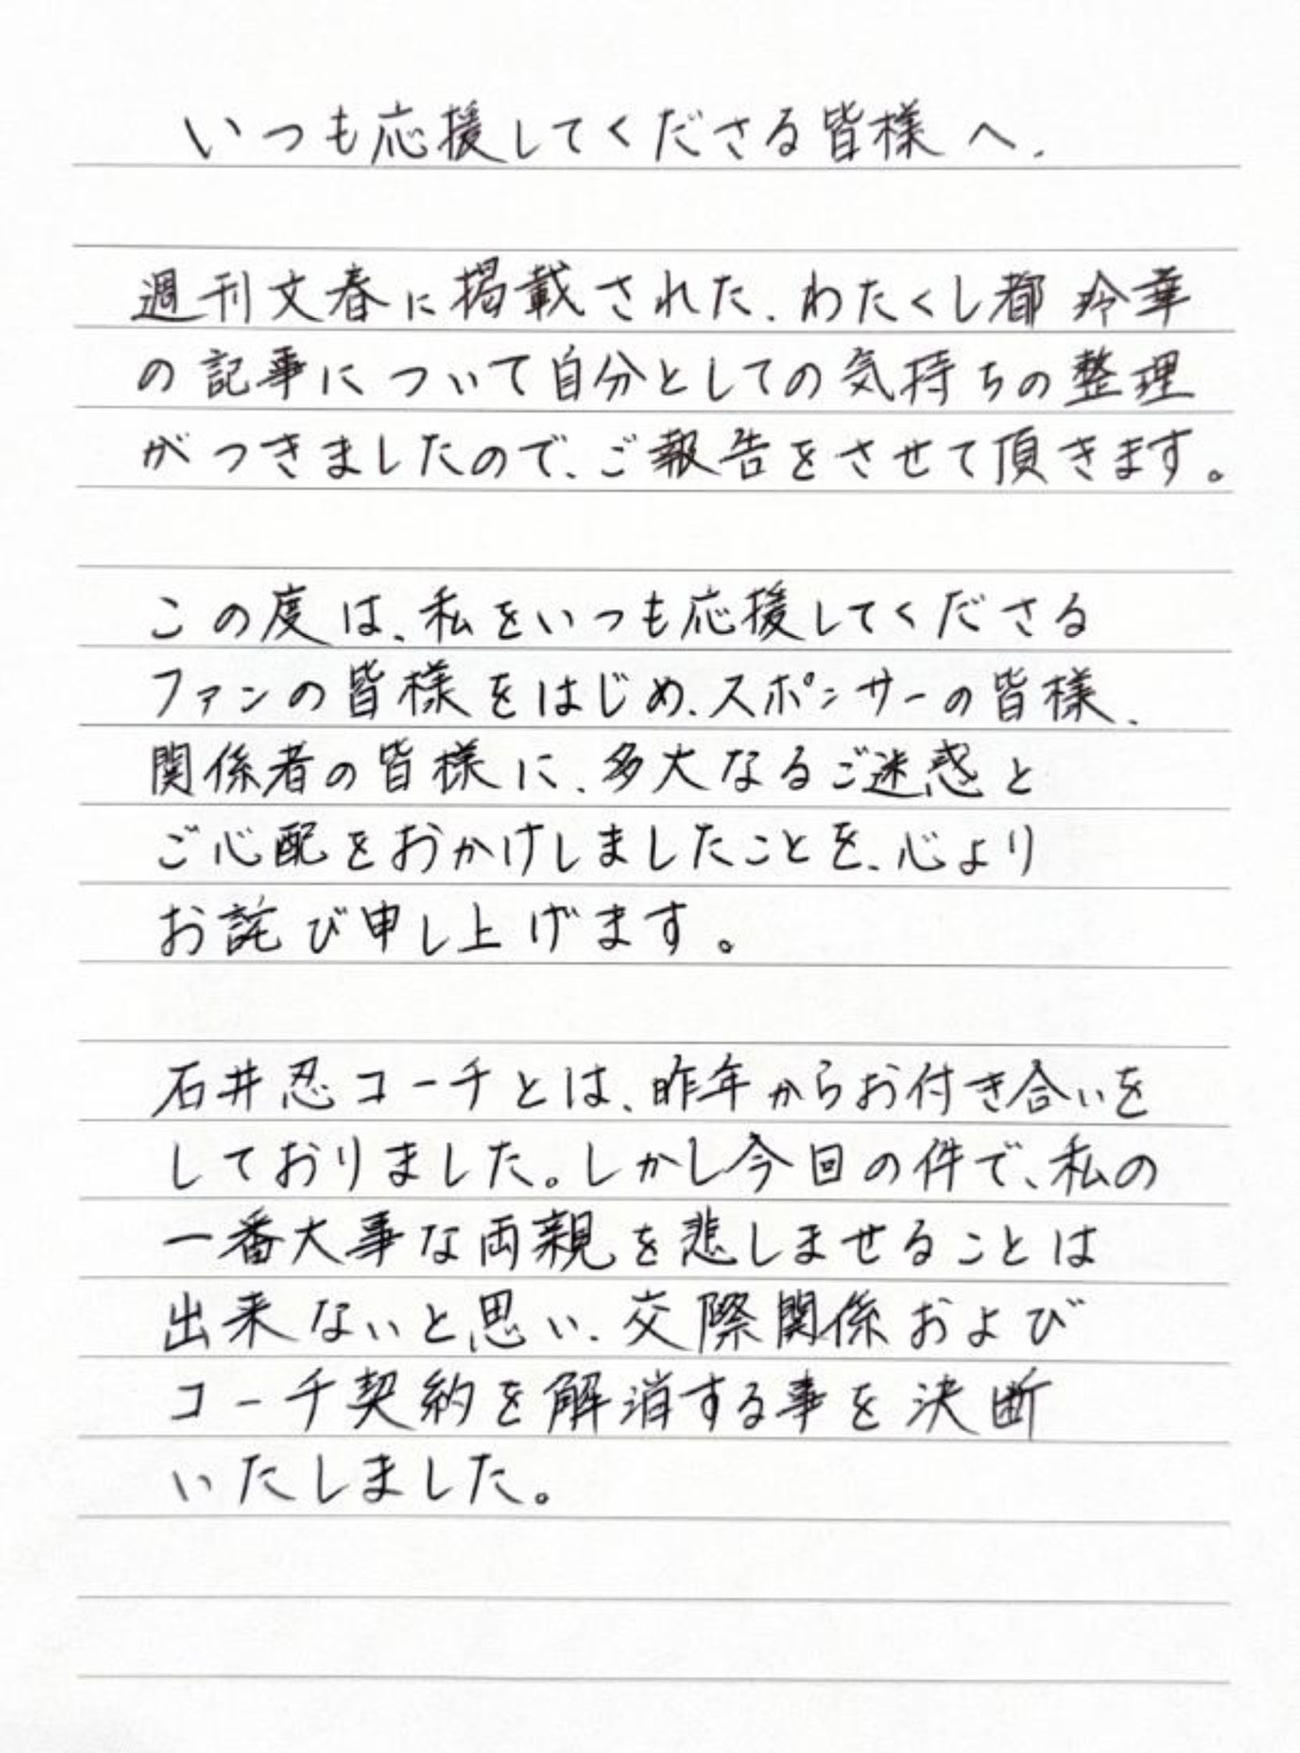 いつも応援してくださる皆様へ、
週刊文春に掲載された、わたくし都 玲華
の記事について自分としての気持ちの整理
がつきましたので、ご報告をさせて頂きます。
この度は、私をいつも応援してくださる
ファンの皆様をはじめ、スポンサーの皆様、
関係者の皆様に、多大なるご迷惑と
ご心配をおかけしましたことを、心より
お詫び申し上げます。
石井忍コーチとは、昨年からお付き合いを
しておりました。しかし今回の件で、私の
一番大事な両親を悲しませることは
出来ないと思い、交際関係および
コーチ契約を解消する事を決断
いたしました。